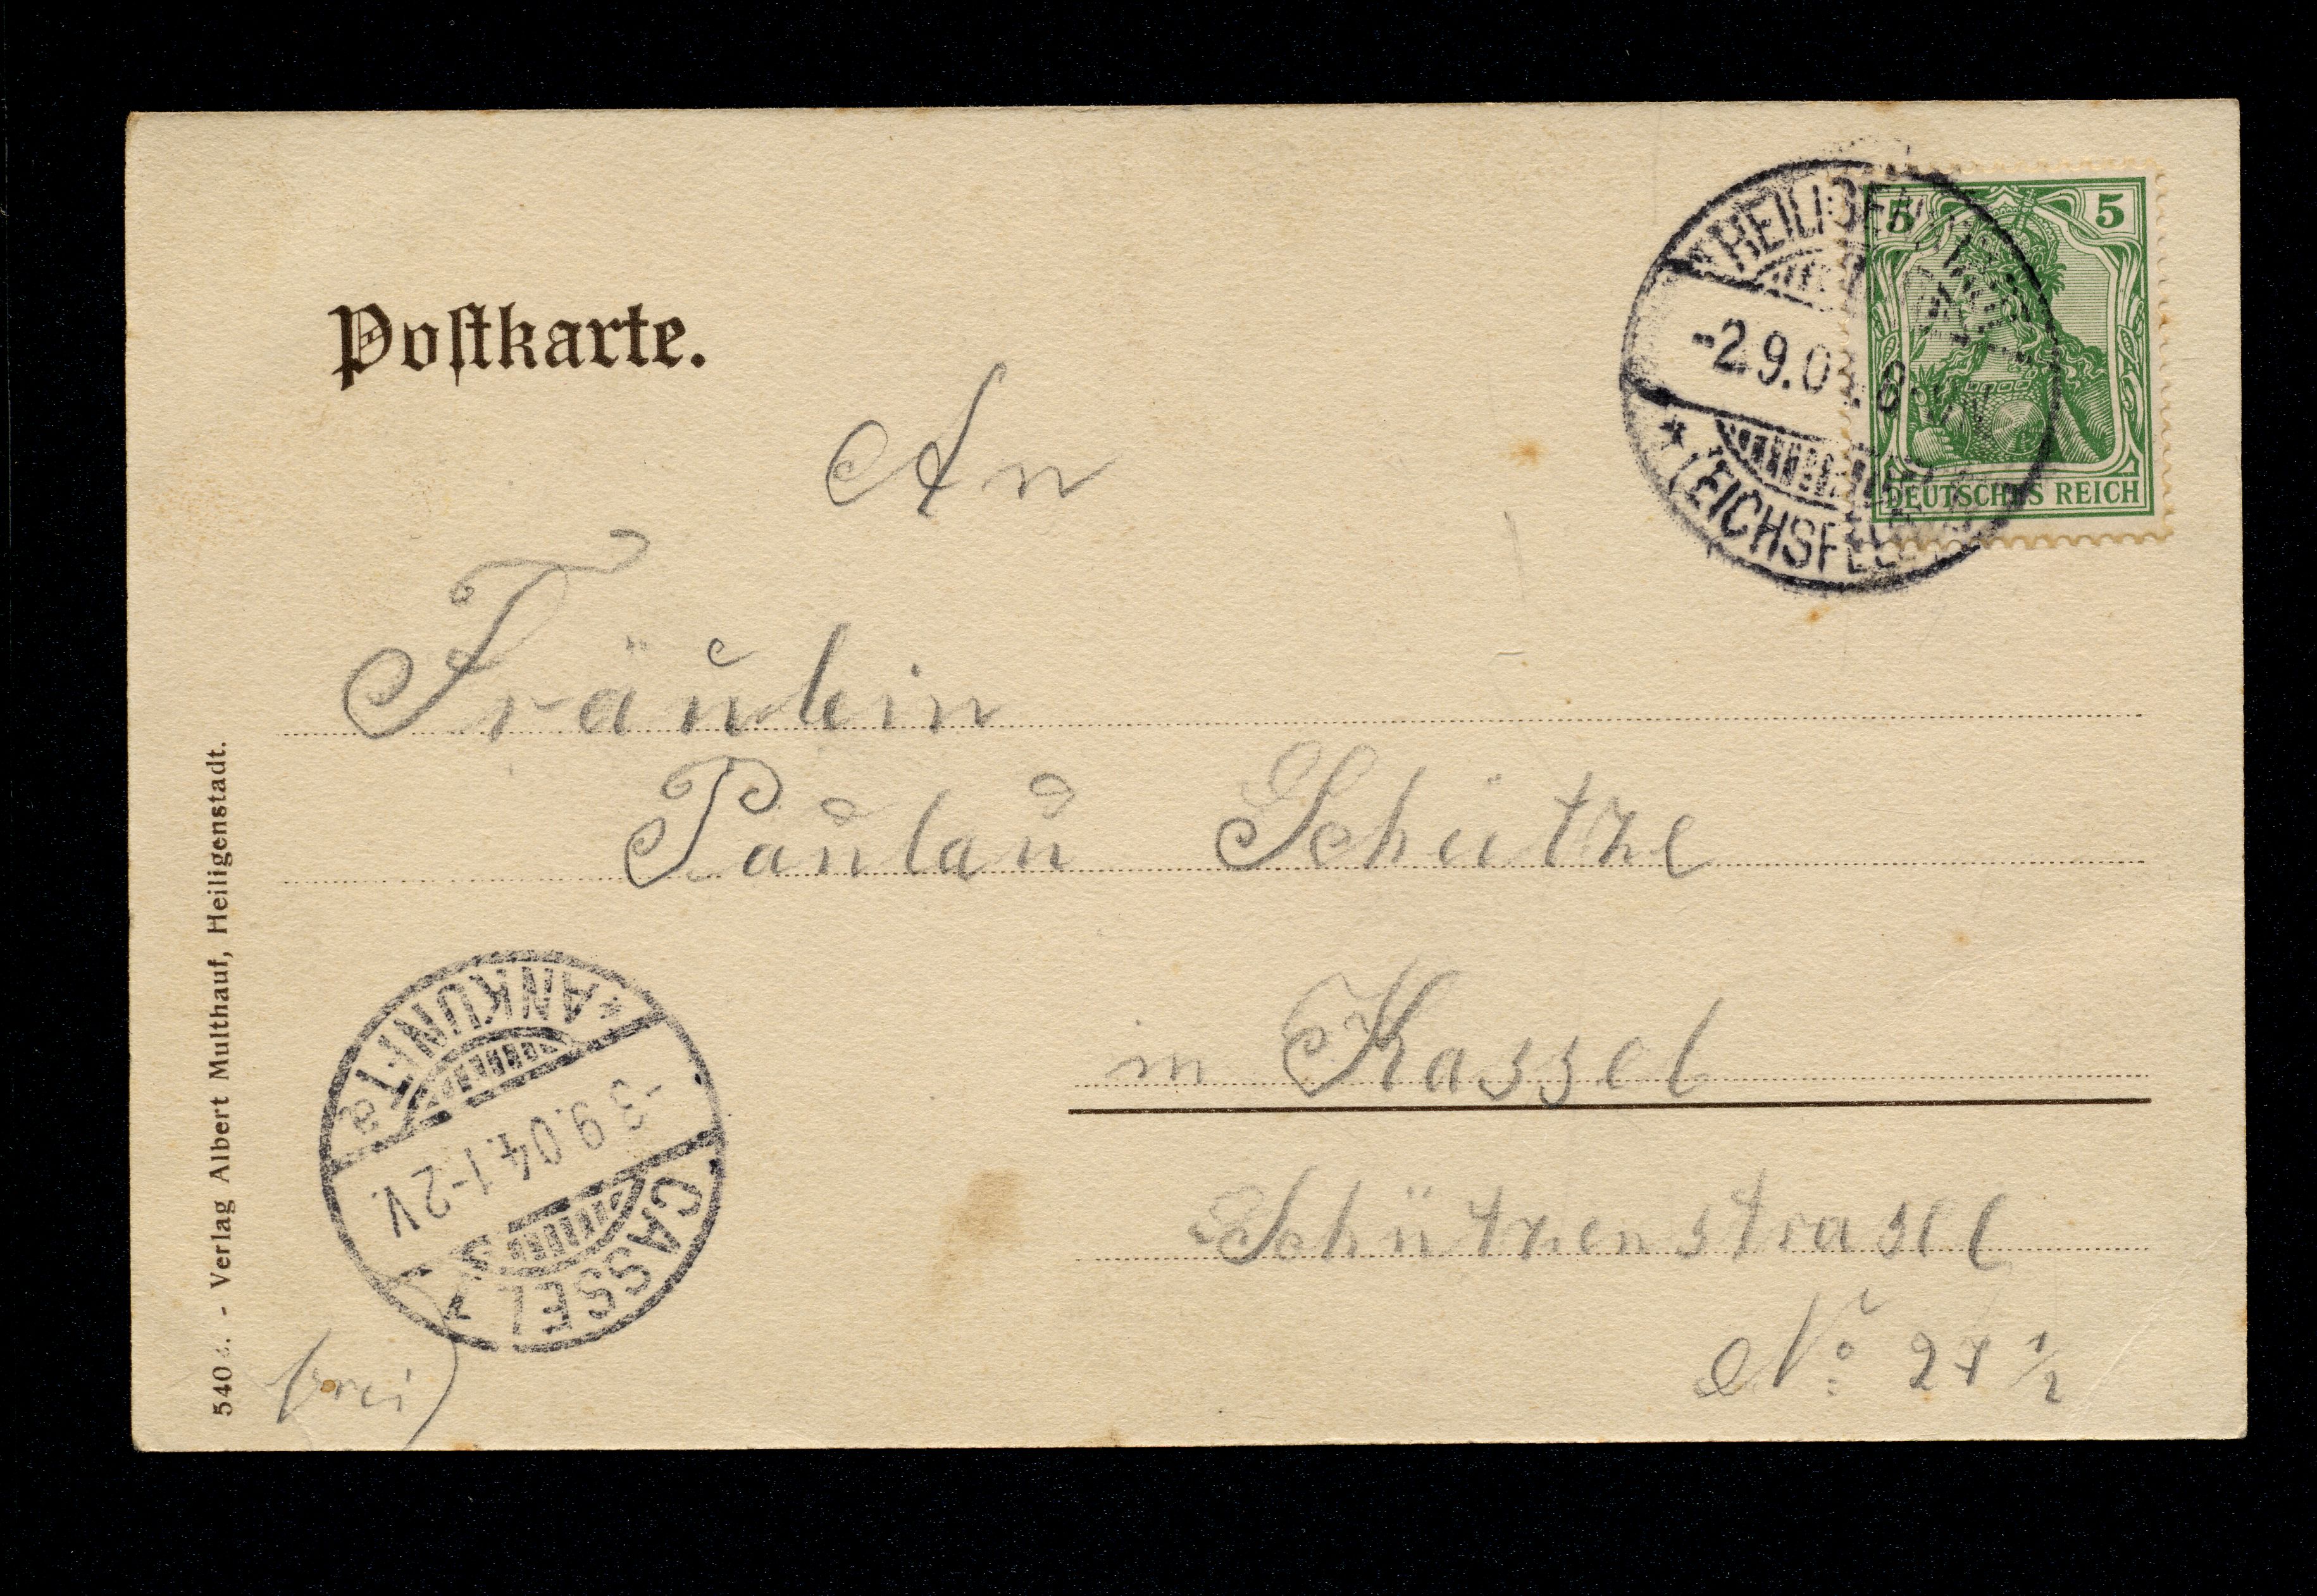 Postkarte.
5 5
DEUTSCHES REICH
HEILIGENSTADT
-2.9.0 8-
* (EICHSFELD)
An
Fräulein
Paulau Schütze
in Kassel
Schützenstrasse
No 27 1/2
* ANKUNFT a
-3.9.04.1-2V.
CASSEL 1
frei
540 - Verlag Albert Multhauf, Heiligenstadt.